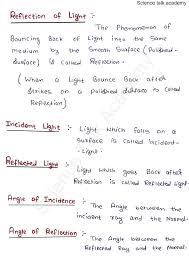 Science talk.academy
Reflection of Light :-
The Phenomenon of
Bouncing Back of Light into the Same
medium by the Smooth Surface (Polished-
Surface) is Called Reflection.
(When a Light Bounce Back after
Strikes on a Polished Surface is called
Reflection)
Incident Light :- Light which falls on a
Surface is called Incident-
Light.
Reflected Light :-
Light which goes Back after
Reflection is called Reflected Light.
Angle of Incidence :- The Angle between the
incident ray and the Normal.
Angle of Reflection :- The Angle between the
Reflected Ray and the Normal.